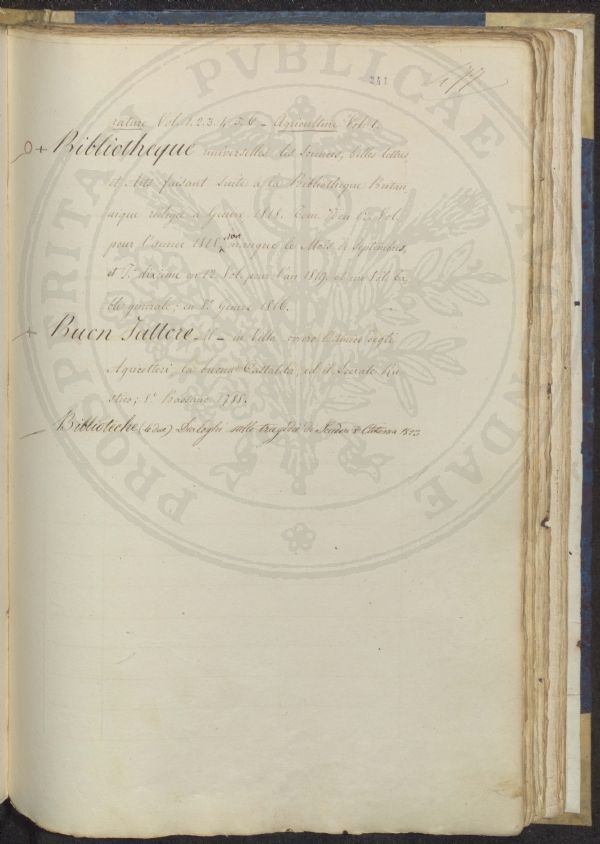 241
177
rature Vol. 1. 2. 3. 4. 5. 6 — Agriculture Vol. 1.
Bibliotheque universelle des Sciences, belles lettres
et Arts faisant Suite a la Bibliotheque Britan
nique redigé a Genève 1818. Tom. en Vol.
pour l'année 1818, manque le Mois de Septembre,
et T. dixième en 12 Vol. pour l'an 1819. et un Vol. ta
ble générale; en 8.° Genève 1816.
Buon Fattore — Il — in Villa, ovvero l'Amico degli
Agricoltori, la buona Cattalda, ed il Ru
stico; 8.° Bassano 1788.
Biblioteche (le due) Dialoghi sulle tragedie di 8.° 1813
PROSPERITATI PVBLICAE AVGENDAE